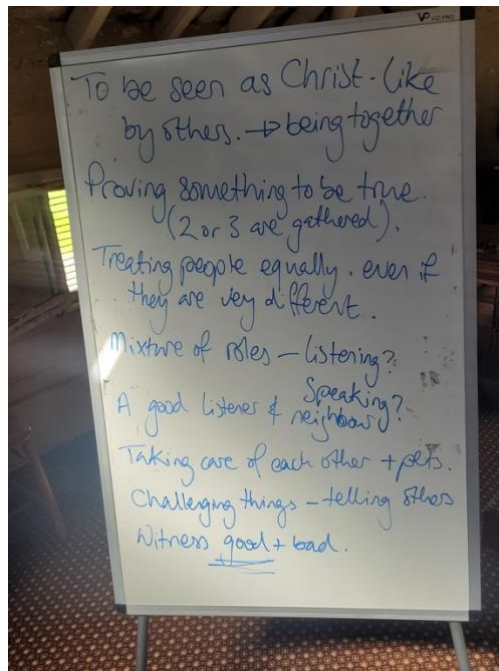 To be seen as Christ-like
by others. → being together
Proving something to be true.
(2 or 3 are gathered).
Treating people equally. even if
they are very different.
Mixture of roles – listening?
Speaking?
A good listener & neighbour
Taking care of each other + pets.
Challenging things – telling others
Witness good + bad.